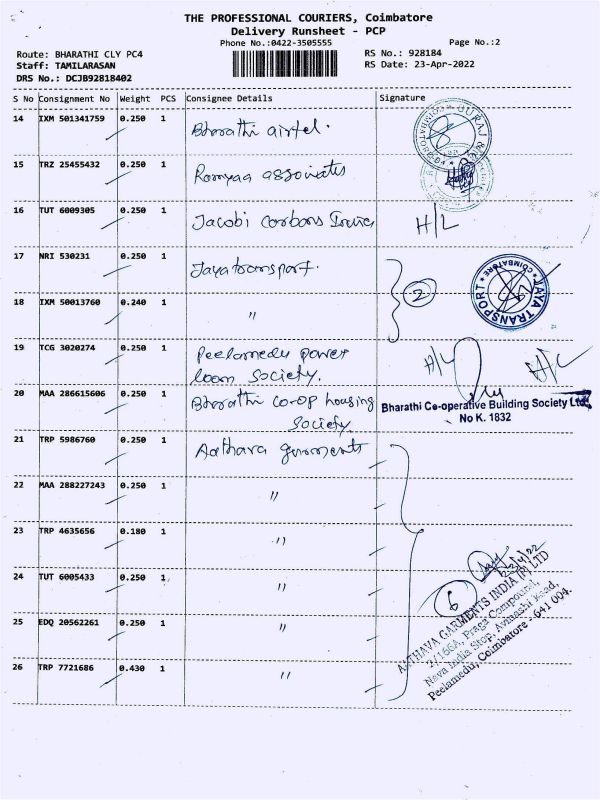 THE PROFESSIONAL COURIERS, Coimbatore
Delivery Runsheet - PCP
Phone No.:0422-3505555
Page No.:2
Route: BHARATHI CLY PC4
RS No.: 928184
Staff: TAMILARASAN
RS Date: 23-Apr-2022
DRS No.: DCJB92818402
S No Consignment No Weight PCS Consignee Details Signature
14 IXM 501341759 0.250 1 Bharathi airtel.
15 TRZ 25455432 0.250 1 Ramyaa associates
16 TUT 6009305 0.250 1 Jacobi carbons H/L
17 NRI 530231 0.250 1 Jaya transport.
2
JAYA TRANSPORT
COIMBATORE
18 IXM 50013760 0.240 1 "
19 TCG 3020274 0.250 1 Peelamedu power
loom society.
H/L H/L
20 MAA 286615606 0.250 1 Bharathi co-op housing
society
Bharathi Co-operative Building Society Ltd
No K. 1832
21 TRP 5986760 0.250 1 Aathava garments
22 MAA 288227243 0.250 1 "
23 TRP 4635656 0.180 1 "
24 TUT 6005433 0.250 1 "
25 EDQ 20562261 0.250 1 "
26 TRP 7721686 0.430 1 "
6
23/4/22
AATHAVA GARMENTS INDIA (P) LTD
2/166A, Praga Compound,
Nava India Stop, Avinashi Road,
Peelamedu, Coimbatore - 641 004.